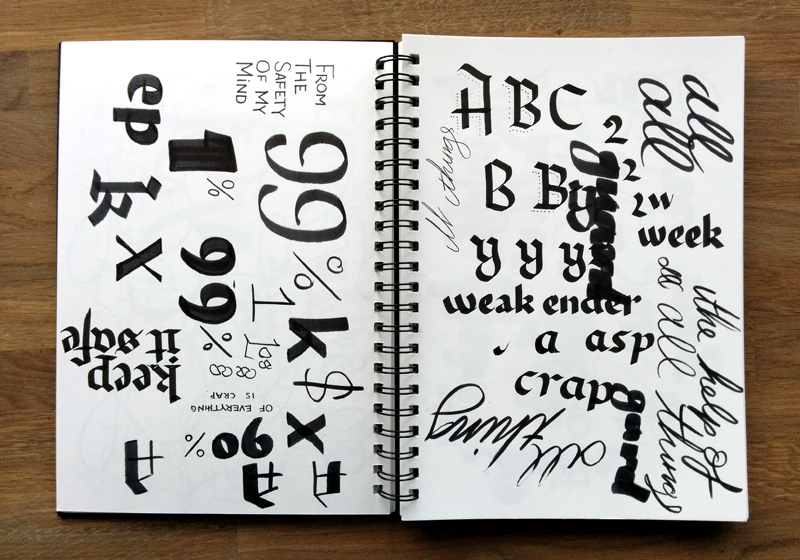 FROM
THE
SAFETY
OF MY
MIND
99%
1%
99%
1
ep
k
x
k
$
x
keep
it safe
90%
OF EVERYTHING
IS CRAP.
A B C
B B
y y y
2
2
2w
week
weak ender
a asp
crap
guard
gard
all
all
all things
the help of
all things
all
thing